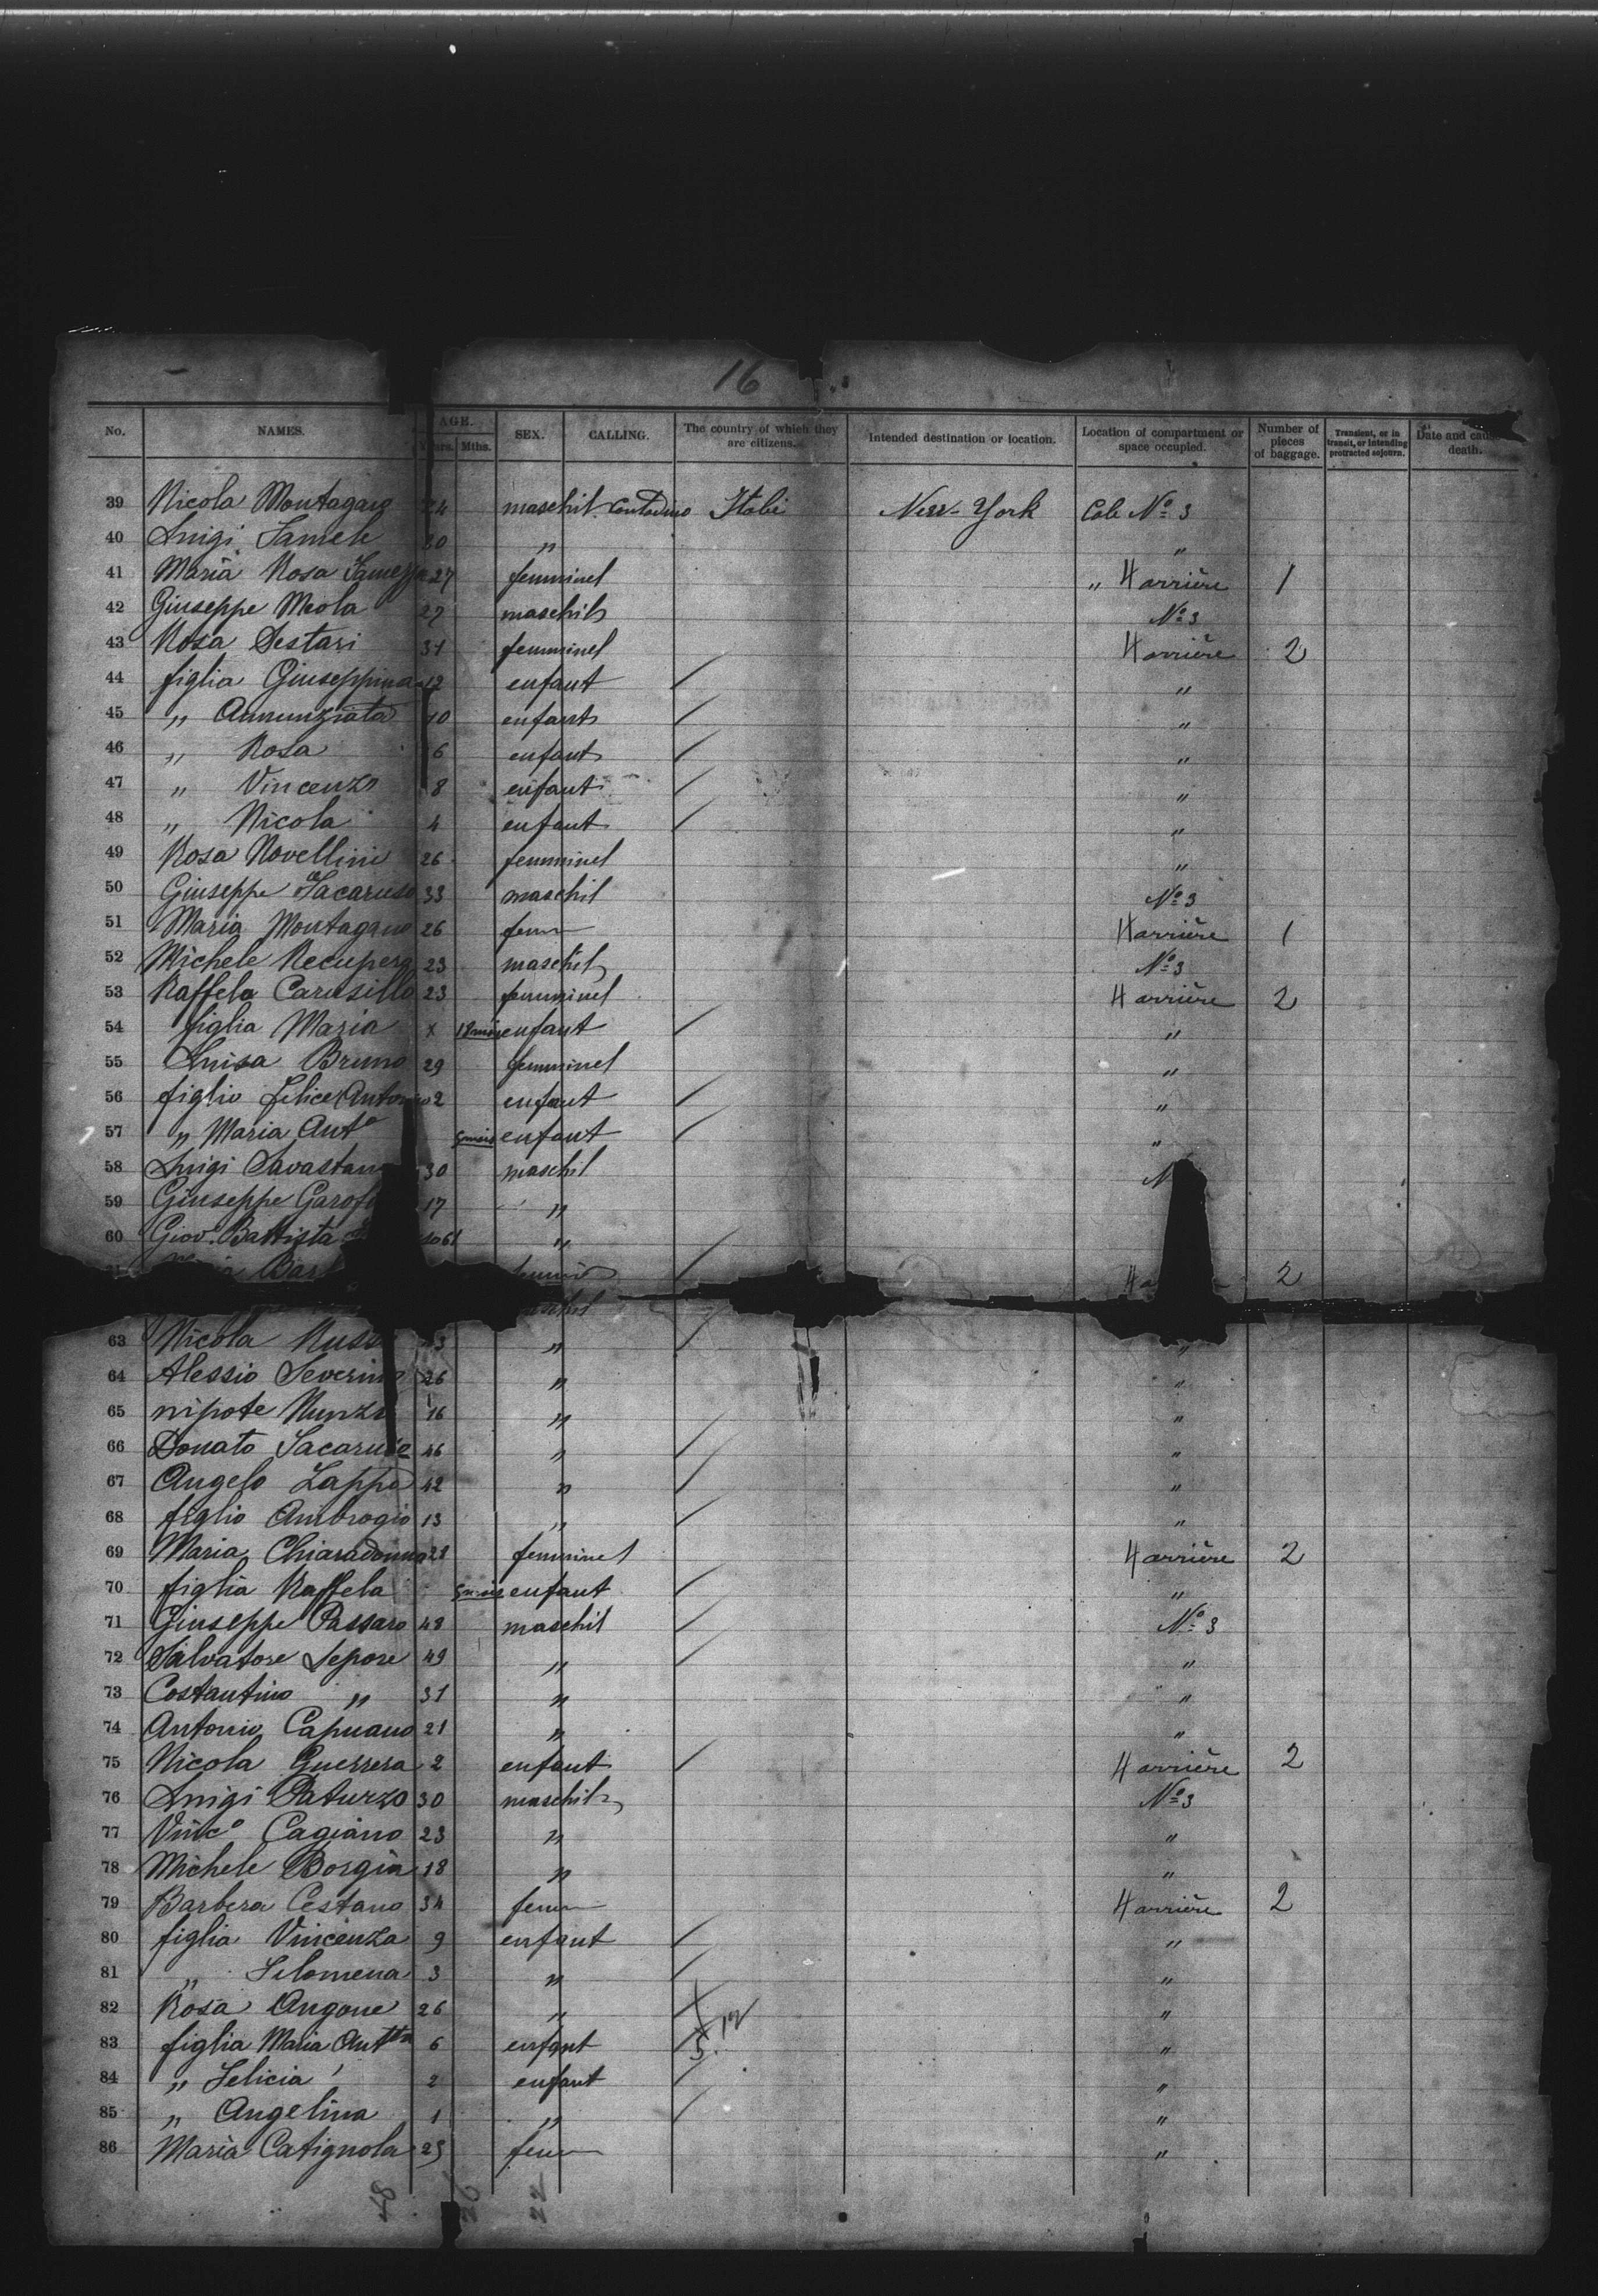 16
No. NAMES. AGE. Years. Mths. SEX. CALLING. The country of which they are citizens. Intended destination or location. Location of compartment or space occupied. Number of pieces of baggage. Transient, or in transit, or intending protracted sojourn. Date and cause death.
39 Nicola Montagano 24 maschil Contadino Itali New-York Cale Nº 3
40 Luigi Samele 30 " "
41 Maria Rosa 27 femminel " 4 arrière 1
42 Giuseppe Meola 27 maschil Nº 3
43 Rosa Sestari 31 femminel 4 arrière 2
44 figlia Giuseppina 12 enfant / "
45 " Annunziata 10 enfant / "
46 " Rosa 6 enfant / "
47 " Vincenzo 8 enfant / "
48 " Nicola 4 enfant / "
49 Rosa Novellini 26 femminel "
50 Giuseppe Iacaruso 33 maschil Nº 3
51 Maria Montagano 26 fem 4 arrière 1
52 Michele Recupero 23 maschil Nº 3
53 Raffela Carusillo 23 femminel 4 arrière 2
54 figlia Maria x 18 mis enfant / "
55 Luisa Bruno 29 femminel "
56 figlio Felice Antonio 2 enfant / "
57 " Maria Antª 5 mis enfant / "
58 Luigi Savastano 30 maschil N
59 Giuseppe Garof 17 "
60 Giovi Battista 61 "
Bar femmin / 4 a 2
63 Nicola Russo " / "
64 Alessio Severino 26 " "
65 nipote Nunzi 16 " "
66 Donato Iacaruso 46 " / "
67 Angelo Zappa 42 " / "
68 figlio Ambrogio 13 " / "
69 Maria Chiaradonna 28 femminel 4 arrière 2
70 figlia Raffela 5 mis enfant / "
71 Giuseppe Passaro 48 maschil / Nº 3
72 Salvatore Lepore 49 " / "
73 Costantino " 31 " "
74 Antonio Capuano 21 " "
75 Nicola Guerrera 2 enfant / 4 arrière 2
76 Luigi Paturzo 30 maschil Nº 3
77 Vincº Cagiano 23 " "
78 Michele Borgia 18 " "
79 Barbera Cestano 34 fem 4 arrière 2
80 figlia Vincenza 9 enfant / "
81 " Filomena 3 " / "
82 Rosa Angone 26 " "
83 figlia Maria Antta 6 enfant / "
84 " Felicia 2 enfant / "
85 " Angelina 1 " / "
86 Maria Catignola 25 fem "
48 26 22